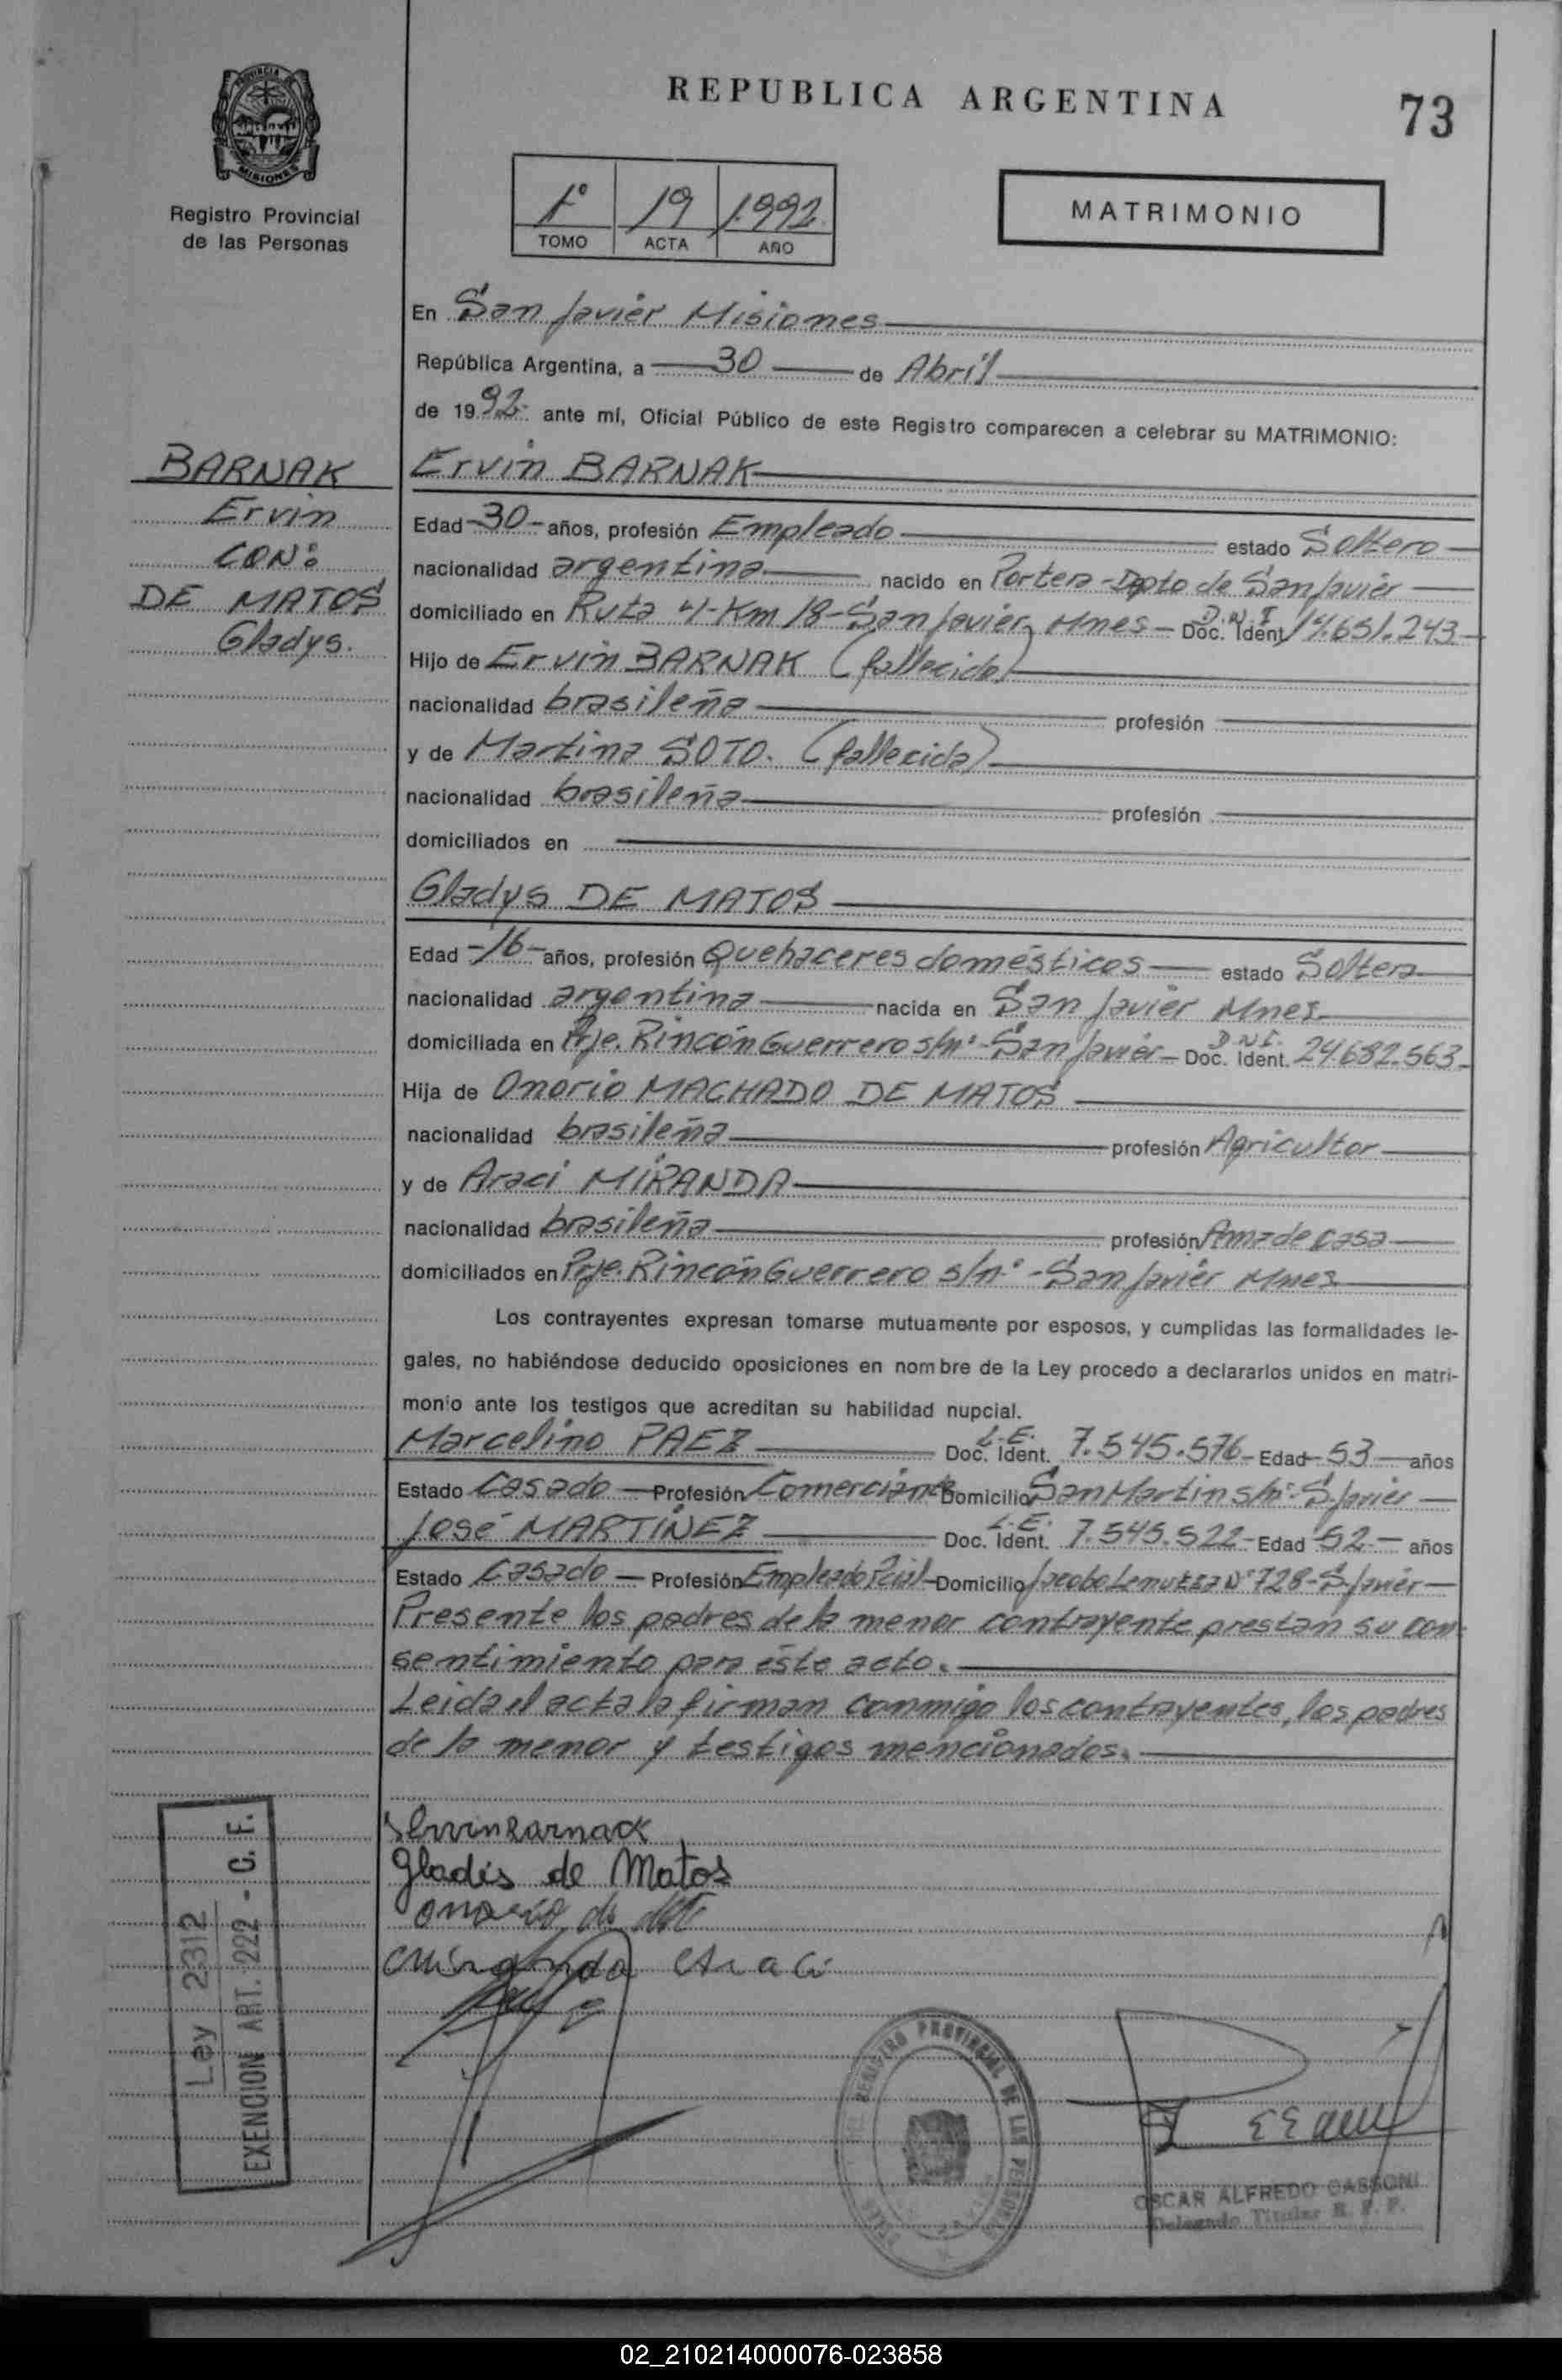 REPUBLICA ARGENTINA
73
PROVINCIA DE
MISIONES
Registro Provincial
de las Personas
1º 19 1.992
TOMO ACTA AÑO
MATRIMONIO
En San Javier Misiones
República Argentina, a 30 de Abril
de 1992. ante mí, Oficial Público de este Registro comparecen a celebrar su MATRIMONIO:
BARNAK
Ervin
CON:
DE MATOS
Gladys.
Ervin BARNAK
Edad -30- años, profesión Empleado estado Soltero
nacionalidad argentina nacido en Portera - Dpto de San Javier
domiciliado en Ruta 4 - Km 18 - San Javier, Mnes - D.N.I Doc. Ident. 14.651.243
Hijo de Ervin BARNAK (fallecido)
nacionalidad brasileña profesión
y de Martina SOTO. (fallecida)
nacionalidad brasileña profesión
domiciliados en
Gladys DE MATOS
Edad -16- años, profesión Quehaceres domésticos estado Soltera
nacionalidad argentina nacida en San Javier Mnes
domiciliada en Prje. Rincón Guerrero s/nº - San Javier - D.N.I. Doc. Ident. 24.682.563
Hija de Onorio MACHADO DE MATOS
nacionalidad brasileña profesión Agricultor
y de Araci MIRANDA
nacionalidad brasileña profesión Ama de casa
domiciliados en Prje. Rincón Guerrero s/nº - San Javier Mnes
Los contrayentes expresan tomarse mutuamente por esposos, y cumplidas las formalidades le-
gales, no habiéndose deducido oposiciones en nombre de la Ley procedo a declararlos unidos en matri-
monio ante los testigos que acreditan su habilidad nupcial.
Marcelino PAEZ L.E. Doc. Ident. 7.545.576 - Edad 53 años
Estado Casado Profesión Comerciante Domicilio San Martin s/nº - S. Javier
José MARTÍNEZ L.E. Doc. Ident. 7.545.522 - Edad 52 - años
Estado Casado Profesión Empleado Pcial - Domicilio Jacobo Nº 728 - S. Javier
Presente los padres de la menor contrayente prestan su con-
sentimiento para éste acto.
Leida el acta la firman conmigo los contrayentes, los padres
de la menor y testigos mencionados.
Gladis de Matos
Miranda Araci
Ley 2312
EXENCION ART. 222 - C. F.
REGISTRO PROVINCIAL DE LAS PERSONAS
OSCAR ALFREDO CASSONI
Delegado Titular R. P. P.
02_210214000076-023858